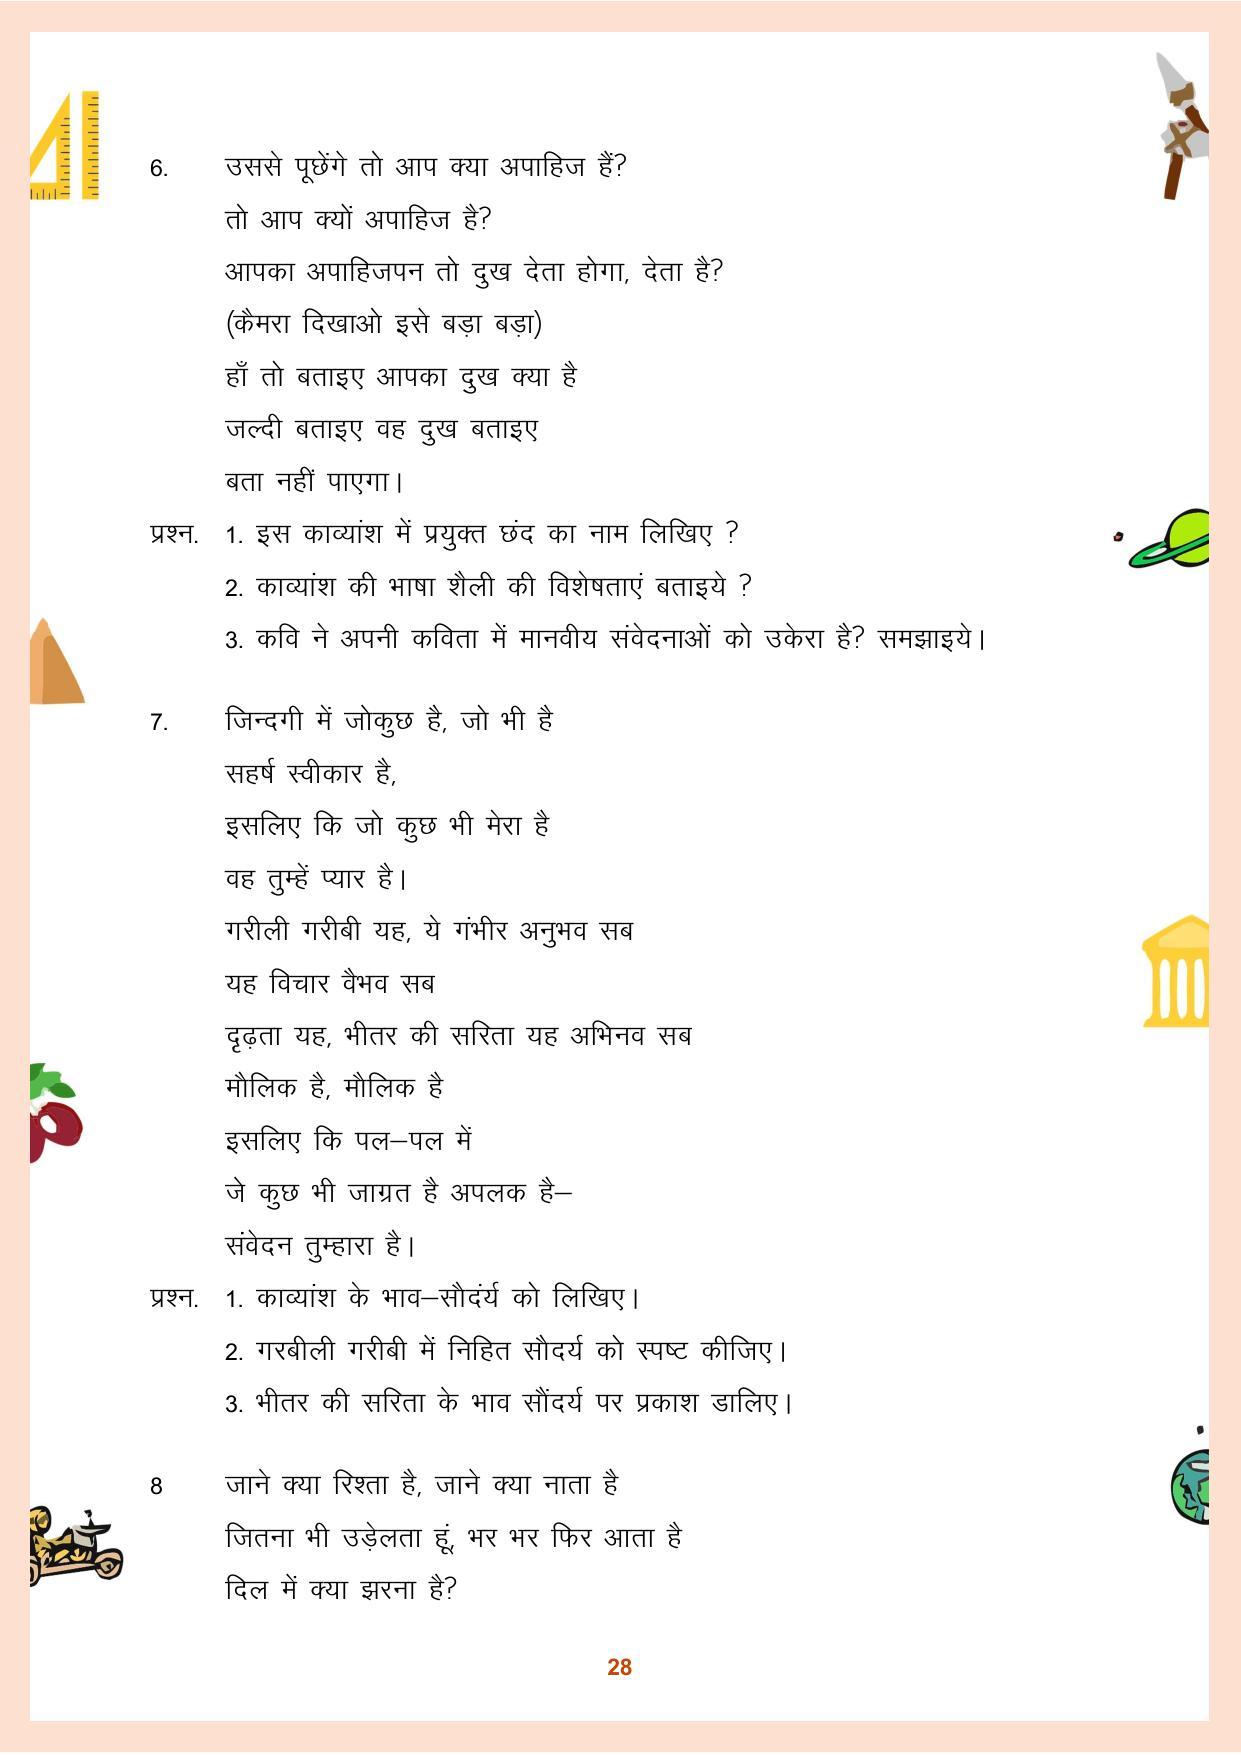 6. उससे पूछेंगे तो आप क्या अपाहिज हैं?
तो आप क्यों अपाहिज है?
आपका अपाहिजपन तो दुख देता होगा, देता है?
(कैमरा दिखाओ इसे बड़ा बड़ा)
हाँ तो बताइए आपका दुख क्या है
जल्दी बताइए वह दुख बताइए
बता नहीं पाएगा।
प्रश्न. 1. इस काव्यांश में प्रयुक्त छंद का नाम लिखिए ?
2. काव्यांश की भाषा शैली की विशेषताएं बताइये ?
3. कवि ने अपनी कविता में मानवीय संवेदनाओं को उकेरा है? समझाइये।
7. जिन्दगी में जोकुछ है, जो भी है
सहर्ष स्वीकार है,
इसलिए कि जो कुछ भी मेरा है
वह तुम्हें प्यार है।
गरीली गरीबी यह, ये गंभीर अनुभव सब
यह विचार वैभव सब
दृढ़ता यह, भीतर की सरिता यह अभिनव सब
मौलिक है, मौलिक है
इसलिए कि पल–पल में
जे कुछ भी जाग्रत है अपलक है–
संवेदन तुम्हारा है।
प्रश्न. 1. काव्यांश के भाव–सौदंर्य को लिखिए।
2. गरबीली गरीबी में निहित सौदर्य को स्पष्ट कीजिए।
3. भीतर की सरिता के भाव सौंदर्य पर प्रकाश डालिए।
8 जाने क्या रिश्ता है, जाने क्या नाता है
जितना भी उड़ेलता हूं, भर भर फिर आता है
दिल में क्या झरना है?
28